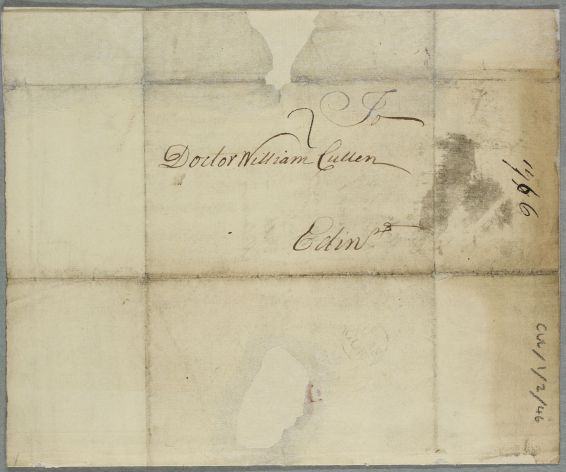 To
Doctor William Cullen
Edinr
CUL/1/2/46